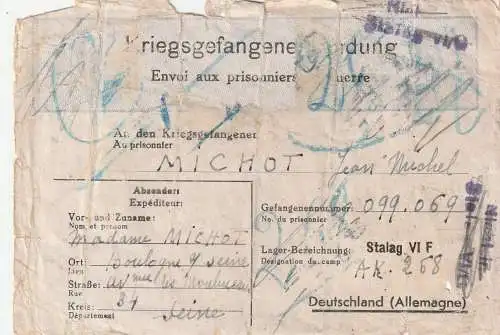 Kriegsgefangenensendung
Envoi aux prisonniers guerre
Stalag VI/G
An den Kriegsgefangenen
Au prisonnier
MICHOT Jean Michel
Absender:
Expéditeur:
Vor- und Zuname:
Nom, et prénom
Madame MICHOT
Ort: Boulogne s/ Seine
Lieu
Straße:
Rue
Kreis: Seine
Département
Gefangenennummer: 099.069
No. du prisonnier
Lager-Bezeichnung: Stalag VI F
Désignation du camp AK. 268
Deutschland (Allemagne)